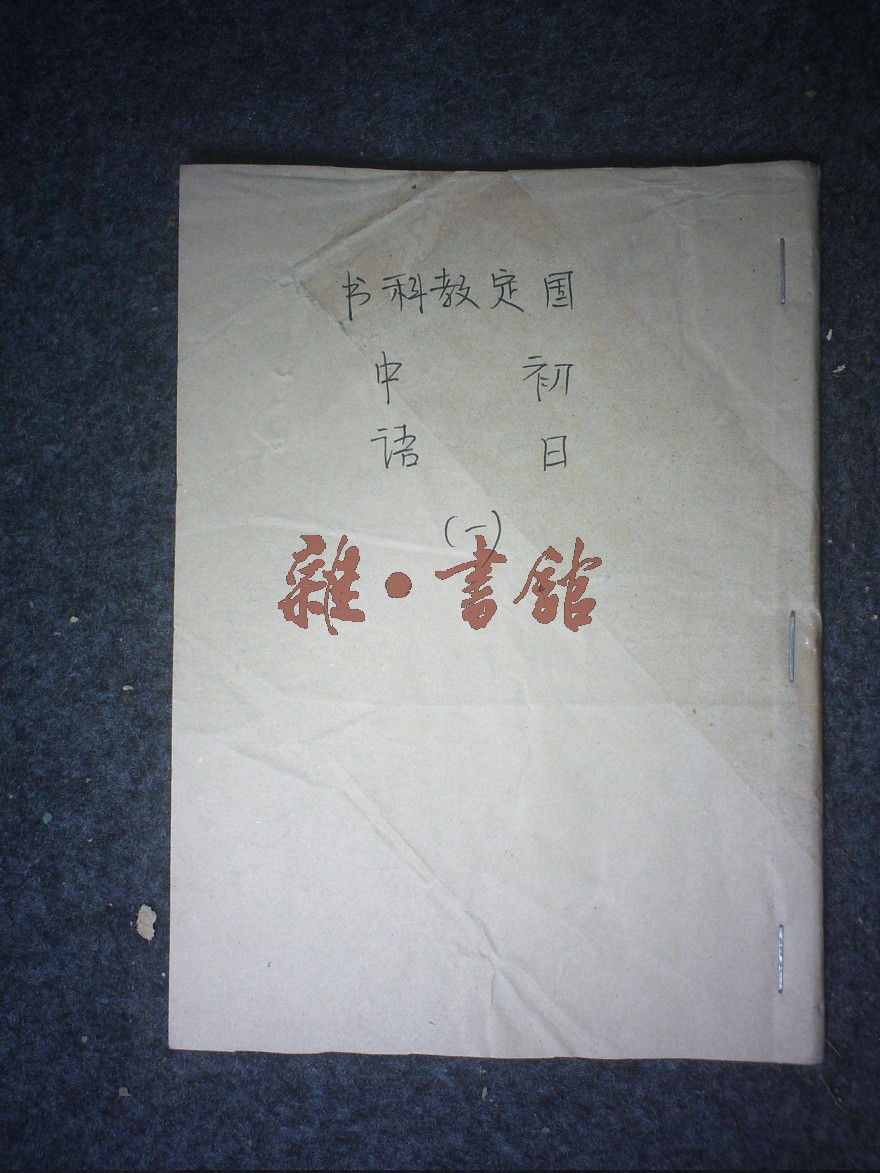 国定教科书
初中
日语
(一)
雜·書館